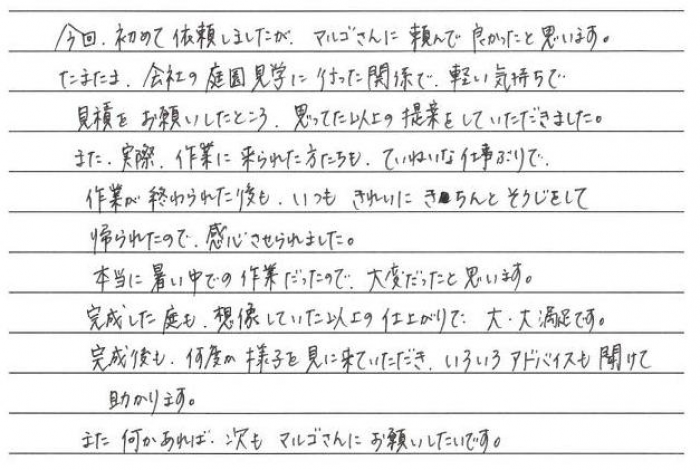 今回、初めて依頼しましたが、マルゴさんに頼んで良かったと思います。
たまたま、会社の庭園見学に行った関係で、軽い気持ちで
見積をお願いしたところ、思ってた以上の提案をしていただきました。
また、実際、作業に来られた方たちも、ていねいな仕事ぶりで、
作業が終わられた後も、いつもきれいにきちんとそうじをして
帰られたので、感心させられました。
本当に暑い中での作業だったので、大変だったと思います。
完成した庭も、想像していた以上の仕上がりで、大・大満足です。
完成後も、何度か様子を見に来ていただき、いろいろアドバイスも聞けて
助かります。
また何かあれば、次もマルゴさんにお願いしたいです。